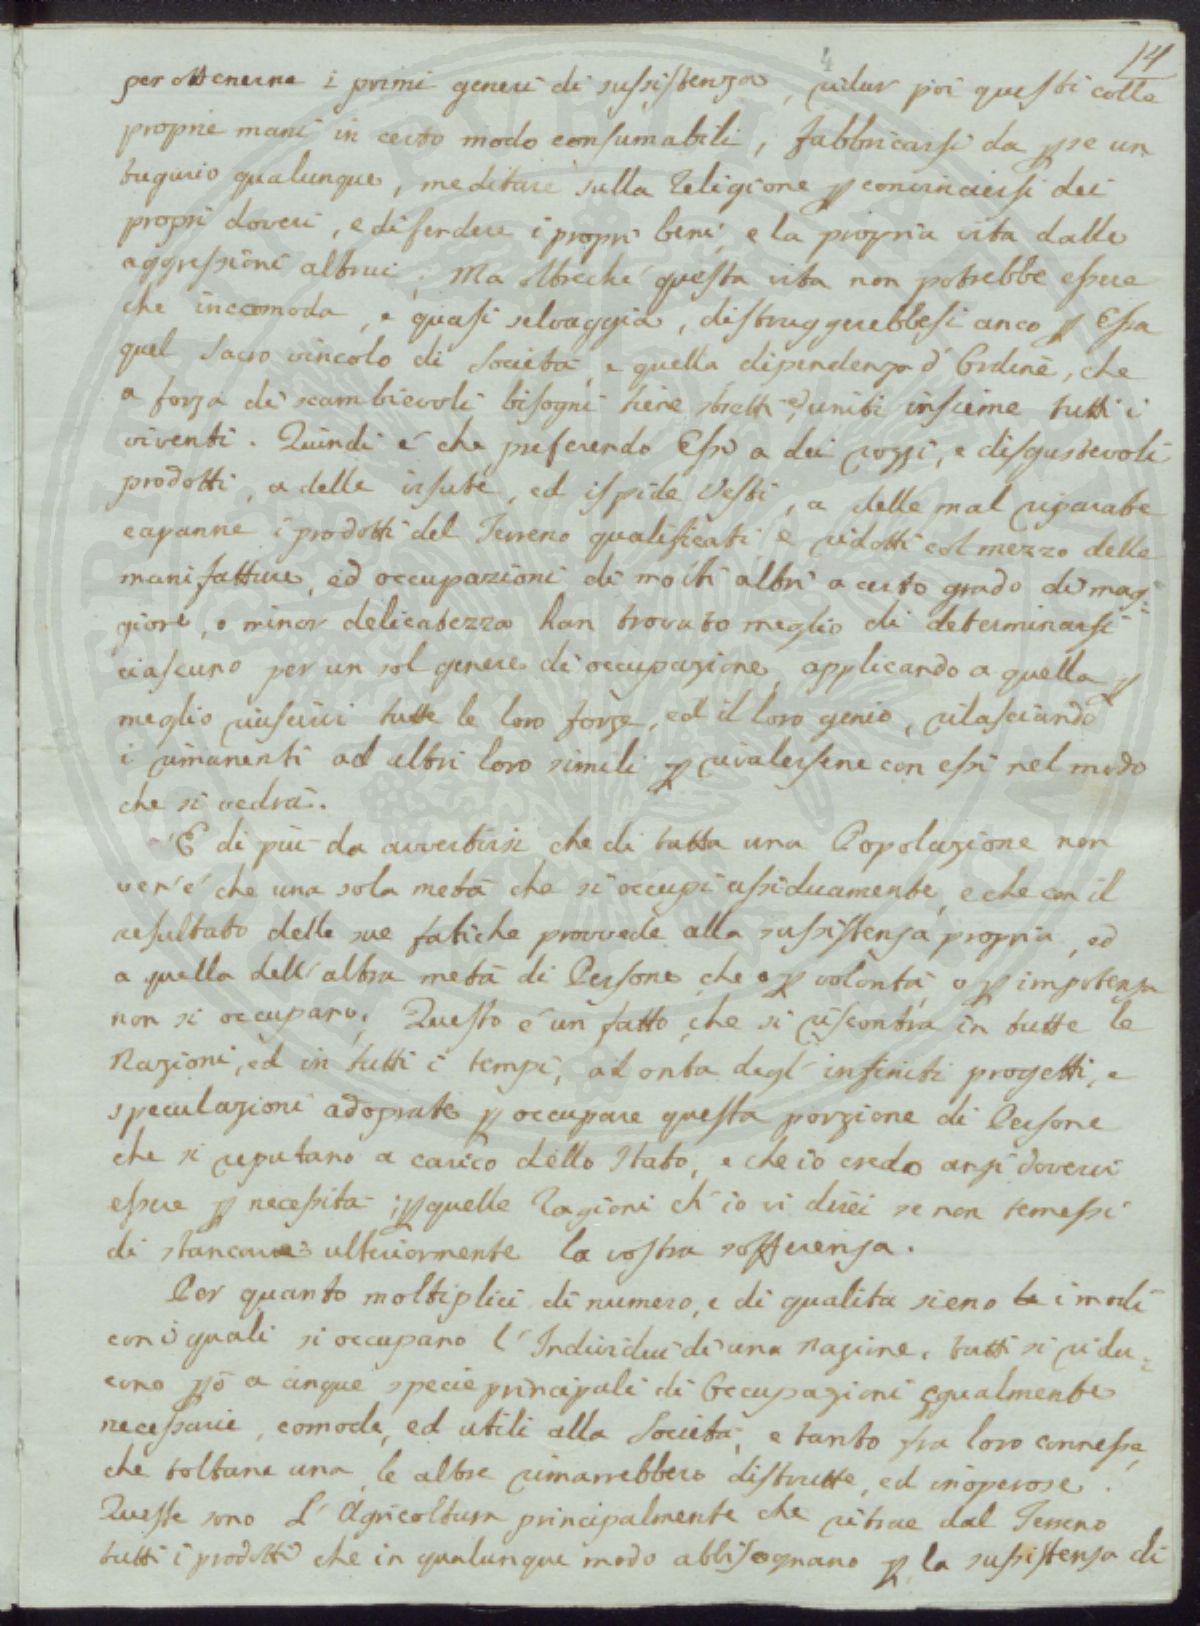 14
per ottenerne i primi generi di sussistenza, ridur poi questi colle
proprie mani in certo modo consumabili, fabbricarsi da p se un
tugurio qualunque, meditare sulla Religione p convincersi dei
propri doveri, e difendere i propri beni, e la propria vita dalle
aggressioni altrui. Ma oltreche questa vita non potrebbe essere
che incomoda, e quasi selvaggia, distruggerebbesi anco p Essa
quel Sacro vincolo di Società, e quella dipendenza d'Ordine, che
a forza di scambievoli bisogni tiene stretti, ed uniti insieme tutti i
viventi. Quindi è che preferendo Essi a dei rozzi, e disgustevoli
prodotti, a delle irsute, ed ispide Vesti, a delle mal riparate
capanne i prodotti del Terreno qualificati, e ridotti col mezzo delle
manifatture, ed occupazioni di molti altri a certo grado di mag=
giore, o minor delicatezza han trovato meglio di determinarsi
ciascuno per un sol genere di occupazione, applicando a quella p
meglio riuscirvi tutte le loro forze, ed il loro genio, rilasciando
i rimanenti ad altri loro simili p rivalersene con essi nel modo
che si vedrà.
E' di più da avvertirsi che di tutta una Popolazione non
ver'è che una sola metà che si occupi assiduamente, e che con il
resultato delle sue fatiche provvede alla sussistenza propria, ed
a quella dell'altra metà di Persone, che o p volontà, o p impotenza
non si occupano. Questo è un fatto, che si riscontra in tutte le
Nazioni, ed in tutti i tempi, ad onta degl'infiniti progetti, e
speculazioni adoprate p occupare questa porzione di Persone
che si reputano a carico dello Stato, e che io credo anzi dovervi
essere p necessità; p quelle Ragioni ch'io vi direi se non temessi
di stancare ulteriormente la vostra sofferenza.
Per quanto moltiplici di numero, e di qualità sieno i modi
con i quali si occupano l'Individui di una Nazione, tutti si ridu=
cono pò a cinque specie principali di Occupazioni egualmente
necessarie, comode, ed utili alla Società, e tanto fra loro connesse,
che toltane una, le altre rimarrebbero distrutte, ed inoperose.
Queste sono L'Agricoltura principalmente che ritrae dal Terreno
tutti i prodotti che in qualunque modo abbisognano p la sussistenza di